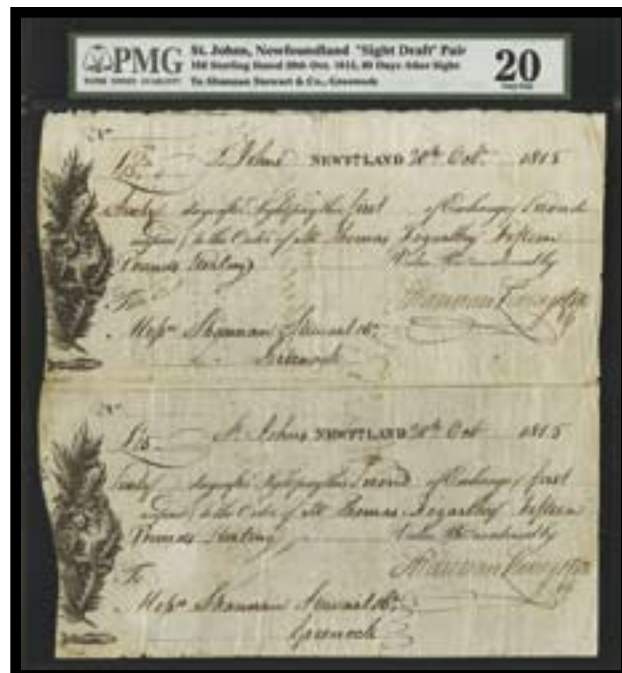 PMG
St. Johns, Newfoundland "Sight Draft" Pair
Sterling Dated 20th Oct. 1815, 60 Days After Sight
To Shannan Stewart & Co., Greenock
20
No
£15
St Johns NEWFDLAND 20th Oct. 1815
Sixty days after Sight pay this first of Exchange Second
unpaid to the Order of Mr Thomas Fifteen
Pounds Sterling Value
To
Messrs Shannan Stewart & Co.
Greenock
No
£15
St Johns NEWFDLAND 20th Oct 1815
Sixty days after Sight pay this Second of Exchange first
unpaid to the Order of Mr Thomas Fifteen
Pounds Sterling Value
To
Messrs Shannan Stewart & Co.
Greenock